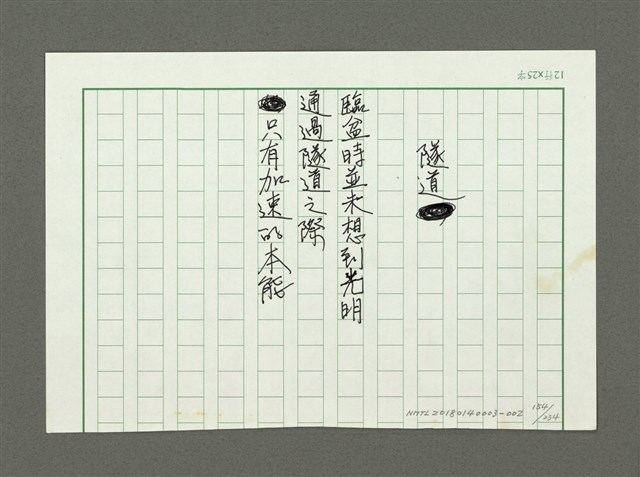 12行×25字
隧道
臨盆時並未想到光明
通過隧道之際
只有加速的本能
NMTL20180140003-002
154/234